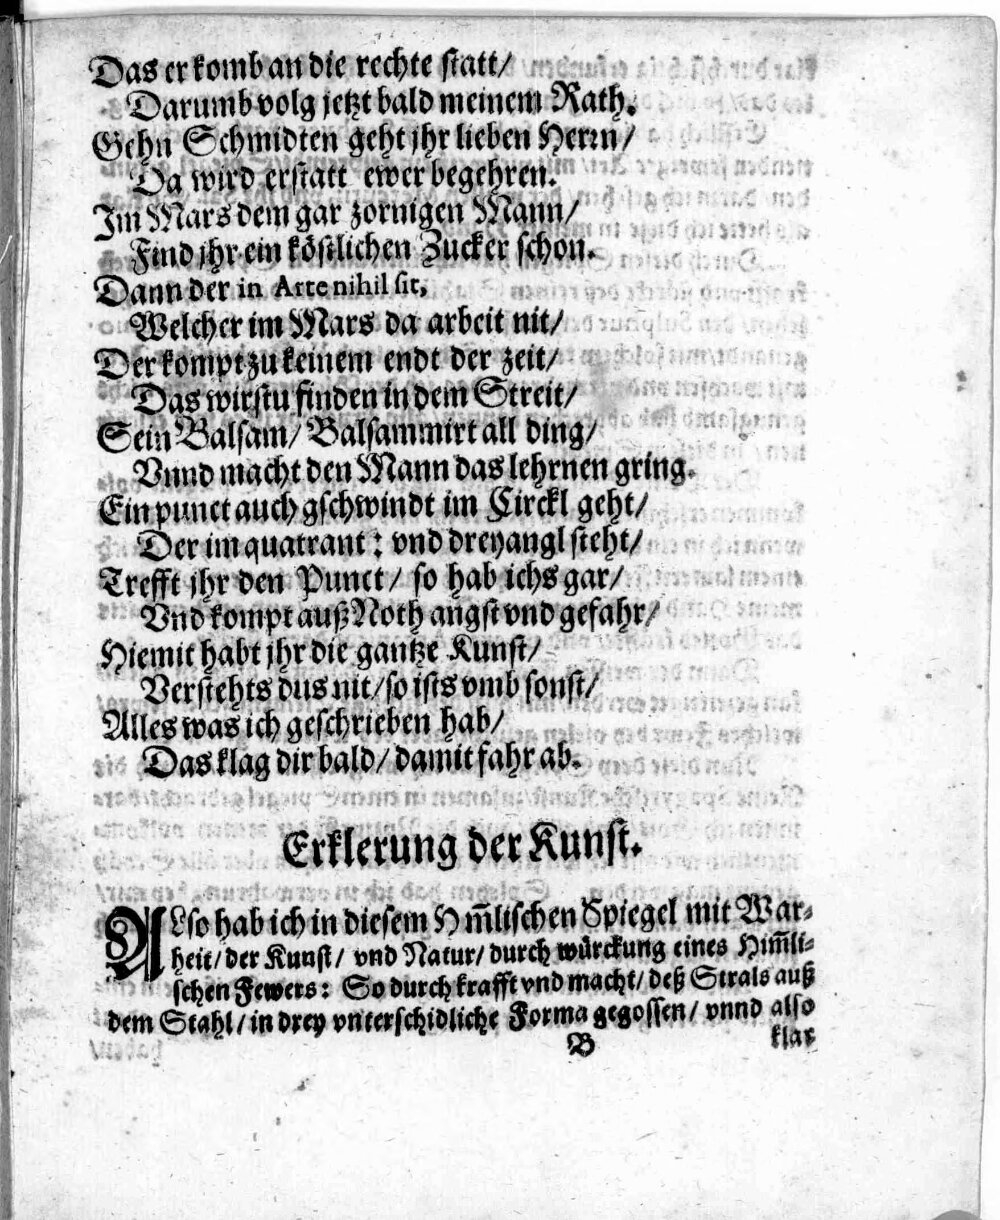 Das er komb an die rechte statt/
Darumb volg jetzt bald meinem Rath.
Gehn Schmidten geht jhr lieben Herrn/
Da wird erstatt ewer begehren.
Im Mars dem gar zornigen Mann/
Find jhr ein köstlichen Zucker schon.
Dann der in Arte nihil sit,
Welcher im Mars da arbeit nit/
Der kompt zu keinem endt der zeit/
Das wirstu finden in dem Streit/
Sein Balsam/ Balsammirt all ding/
Vnnd macht den Mann das lehrnen gring.
Ein punct auch gschwindt im Circkl geht/
Der im quatrant: vnd dreyangl steht/
Trefft jhr den Punct/ so hab ichs gar/
Vnd kompt auß Noth angst vnd gefahr/
Hiemit habt jhr die gantze Kunst/
Verstehts dus nit/ so ists vmb sonst/
Alles was ich geschrieben hab/
Das klag dir bald/ damit fahr ab.
Erklerung der Kunst.
ALso hab ich in diesem Him̃lischen Spiegel mit War-
heit/ der Kunst/ vnd Natur/ durch würckung eines Him̃li-
schen Fewers: So durch krafft vnd macht/ deß Strals auß
dem Stahl/ in drey vnterschidliche Forma gegossen/ vnnd also
B klar